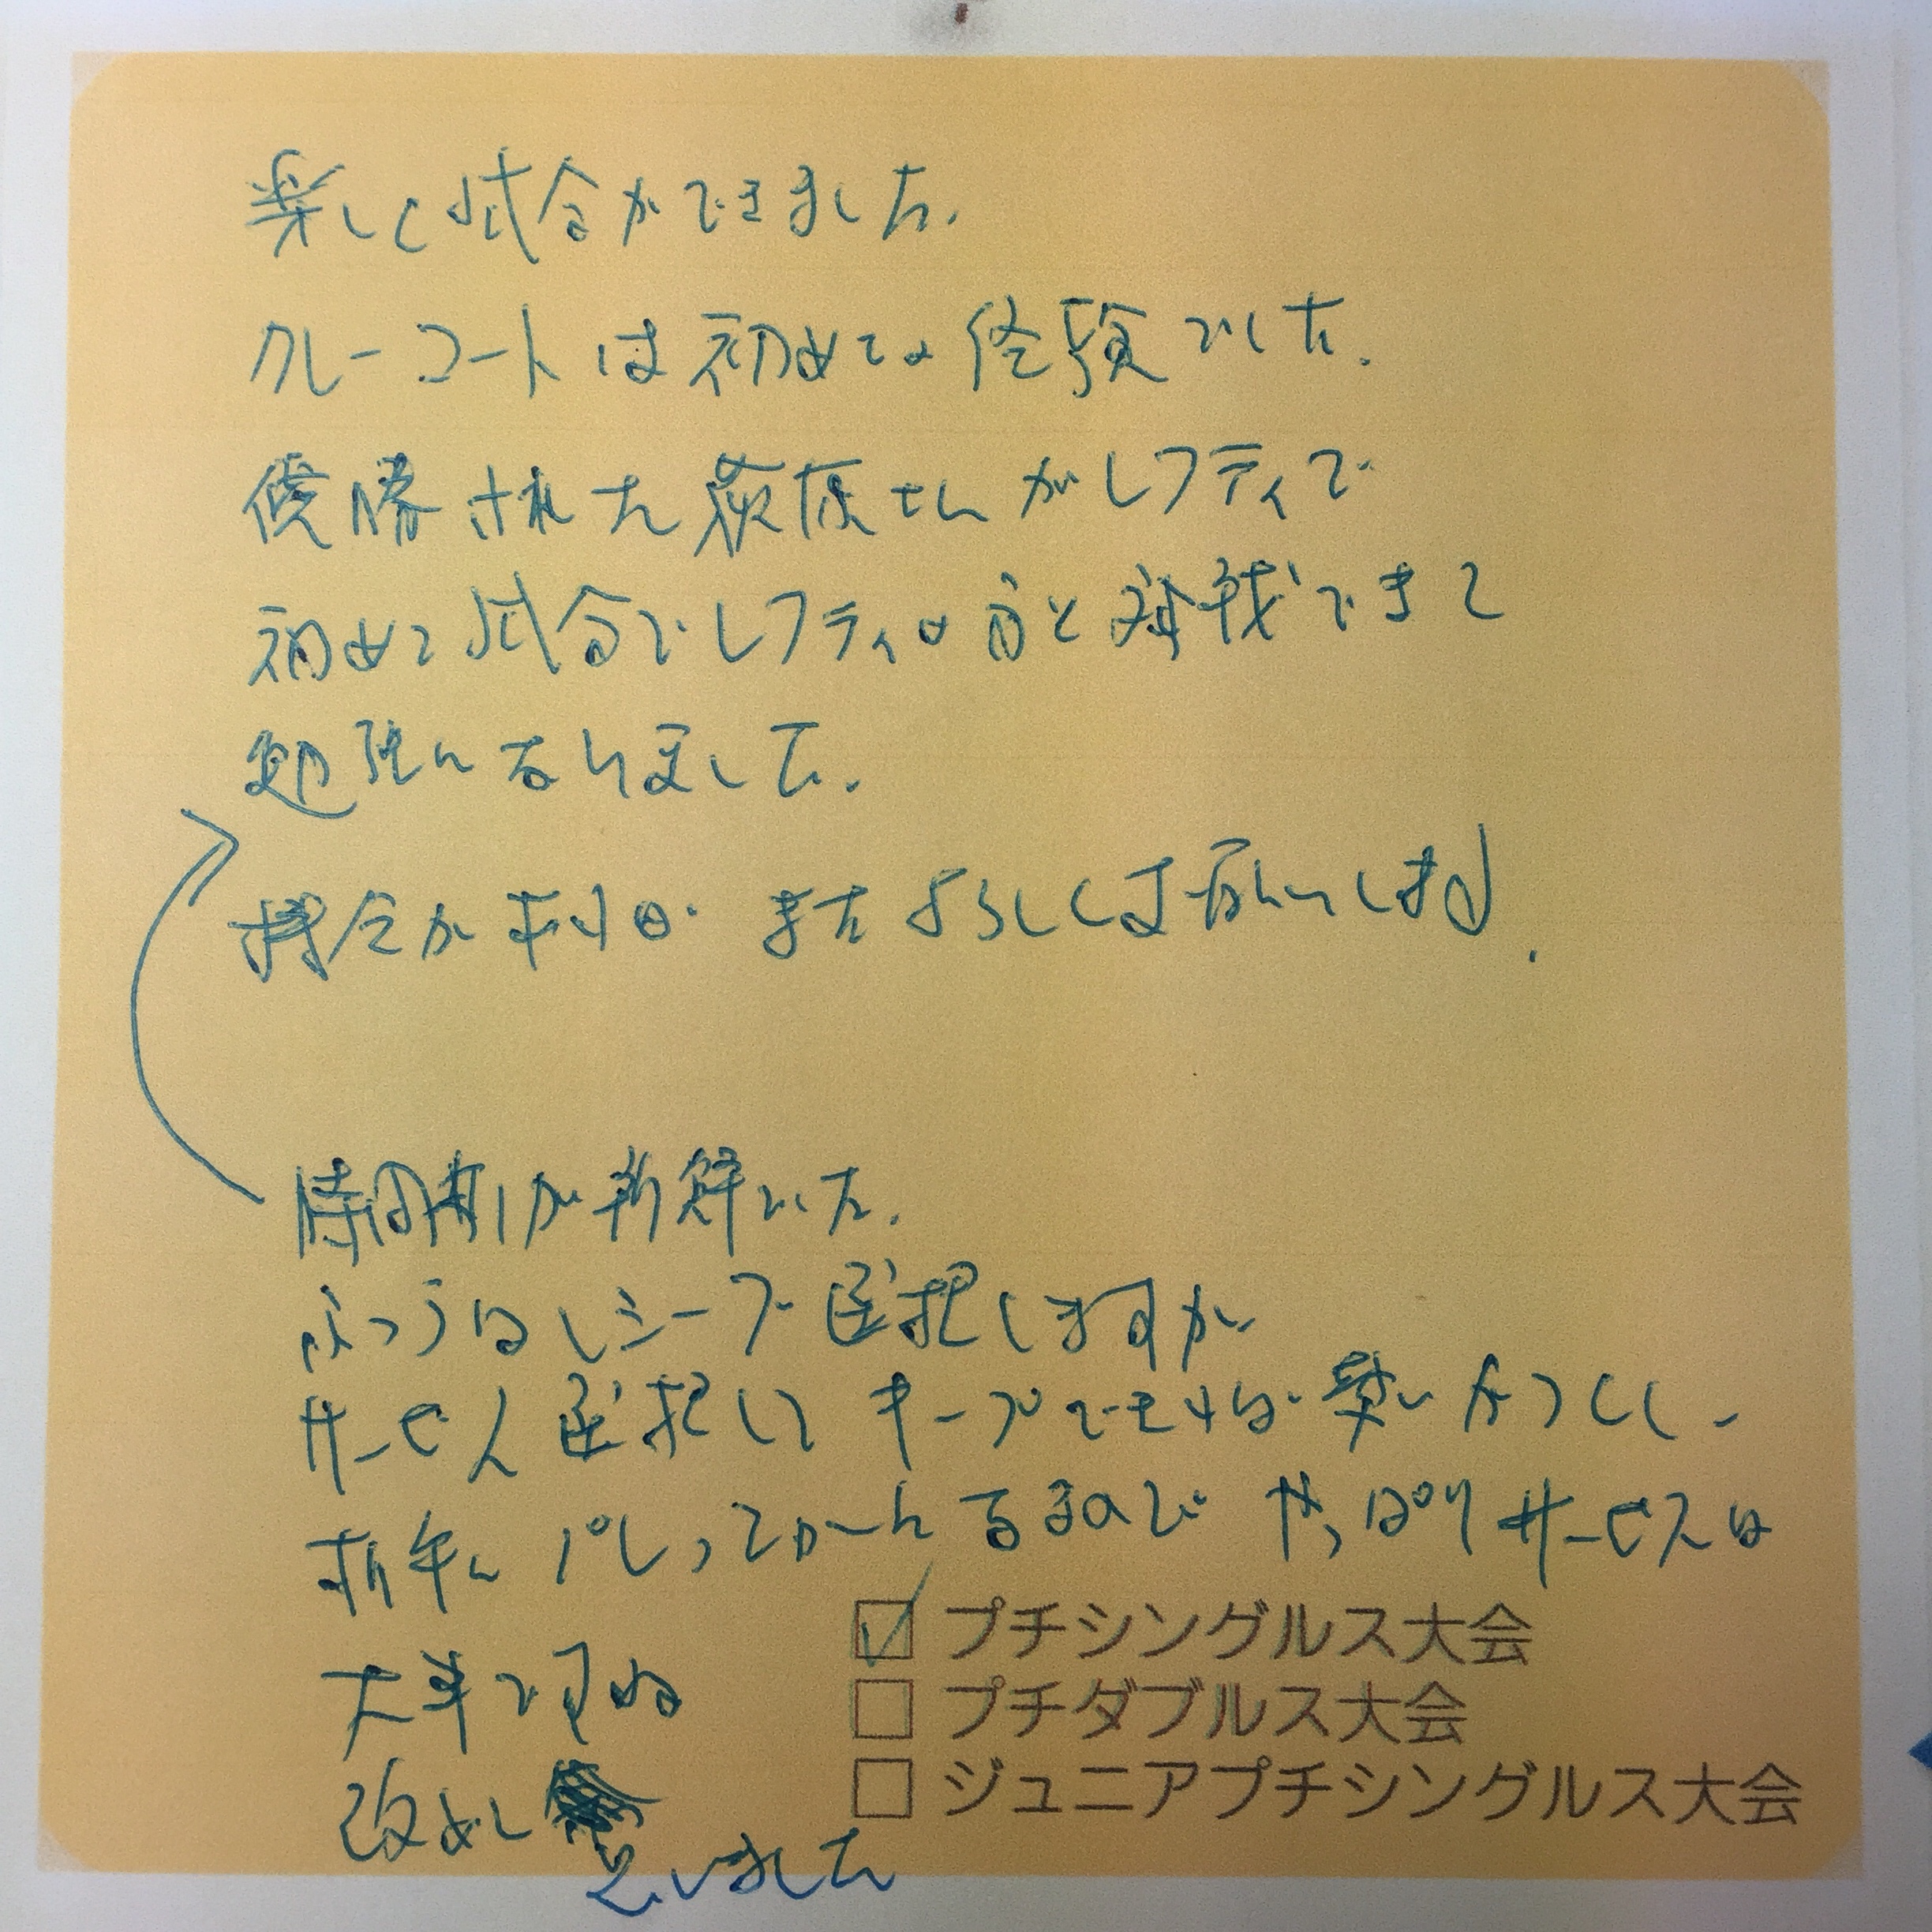 楽しく試合ができました.
クレーコートは初めての経験でした.
優勝された萩原さんがレフティで
初めて試合でレフティの方と対戦できて
勉強になりました.
機会が有れば またよろしくお願いします.
時間制が新鮮でした.
ふつうはレシーブ選択しますが
サービス選択して キープできれば楽しかつ
やっぱりサービスは
大事ですね
改めて
思いました
プチシングルス大会
プチダブルス大会
ジュニアプチシングルス大会